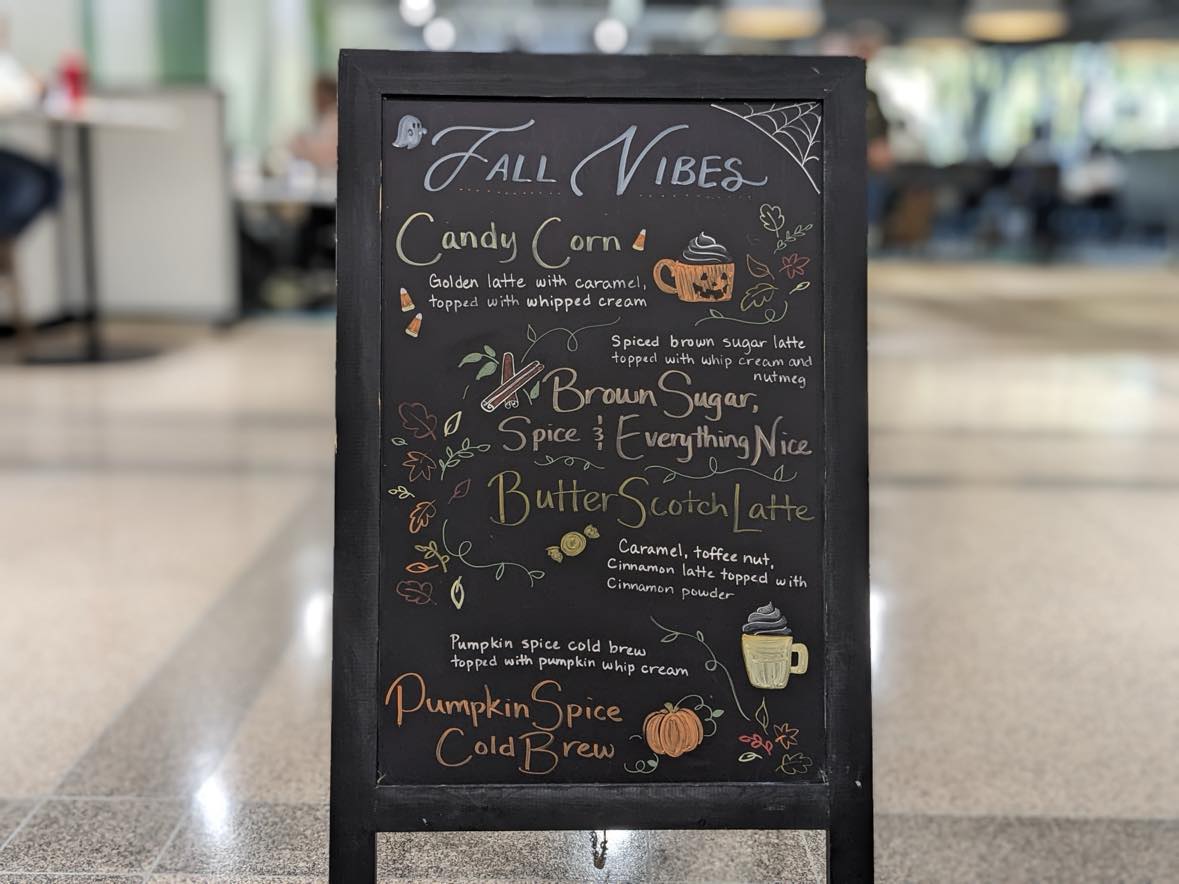 Fall Vibes
Candy Corn
Golden latte with caramel,
topped with whipped cream
Spiced brown sugar latte
topped with whip cream and
nutmeg
Brown Sugar,
Spice & Everything Nice
ButterScotch Latte
Caramel, toffee nut,
Cinnamon latte topped with
Cinnamon powder
Pumpkin spice cold brew
topped with pumpkin whip cream
Pumpkin Spice
Cold Brew